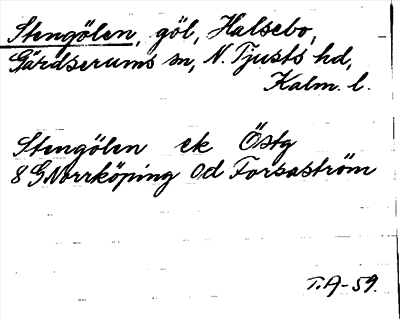 Stengölen, göl, Halsebo,
Gärdserums sn, N. Tjusts hd,
Kalm. l.
Stengölen ek Östg
8 G Norrköping 0d Forsaström
T.A-59.